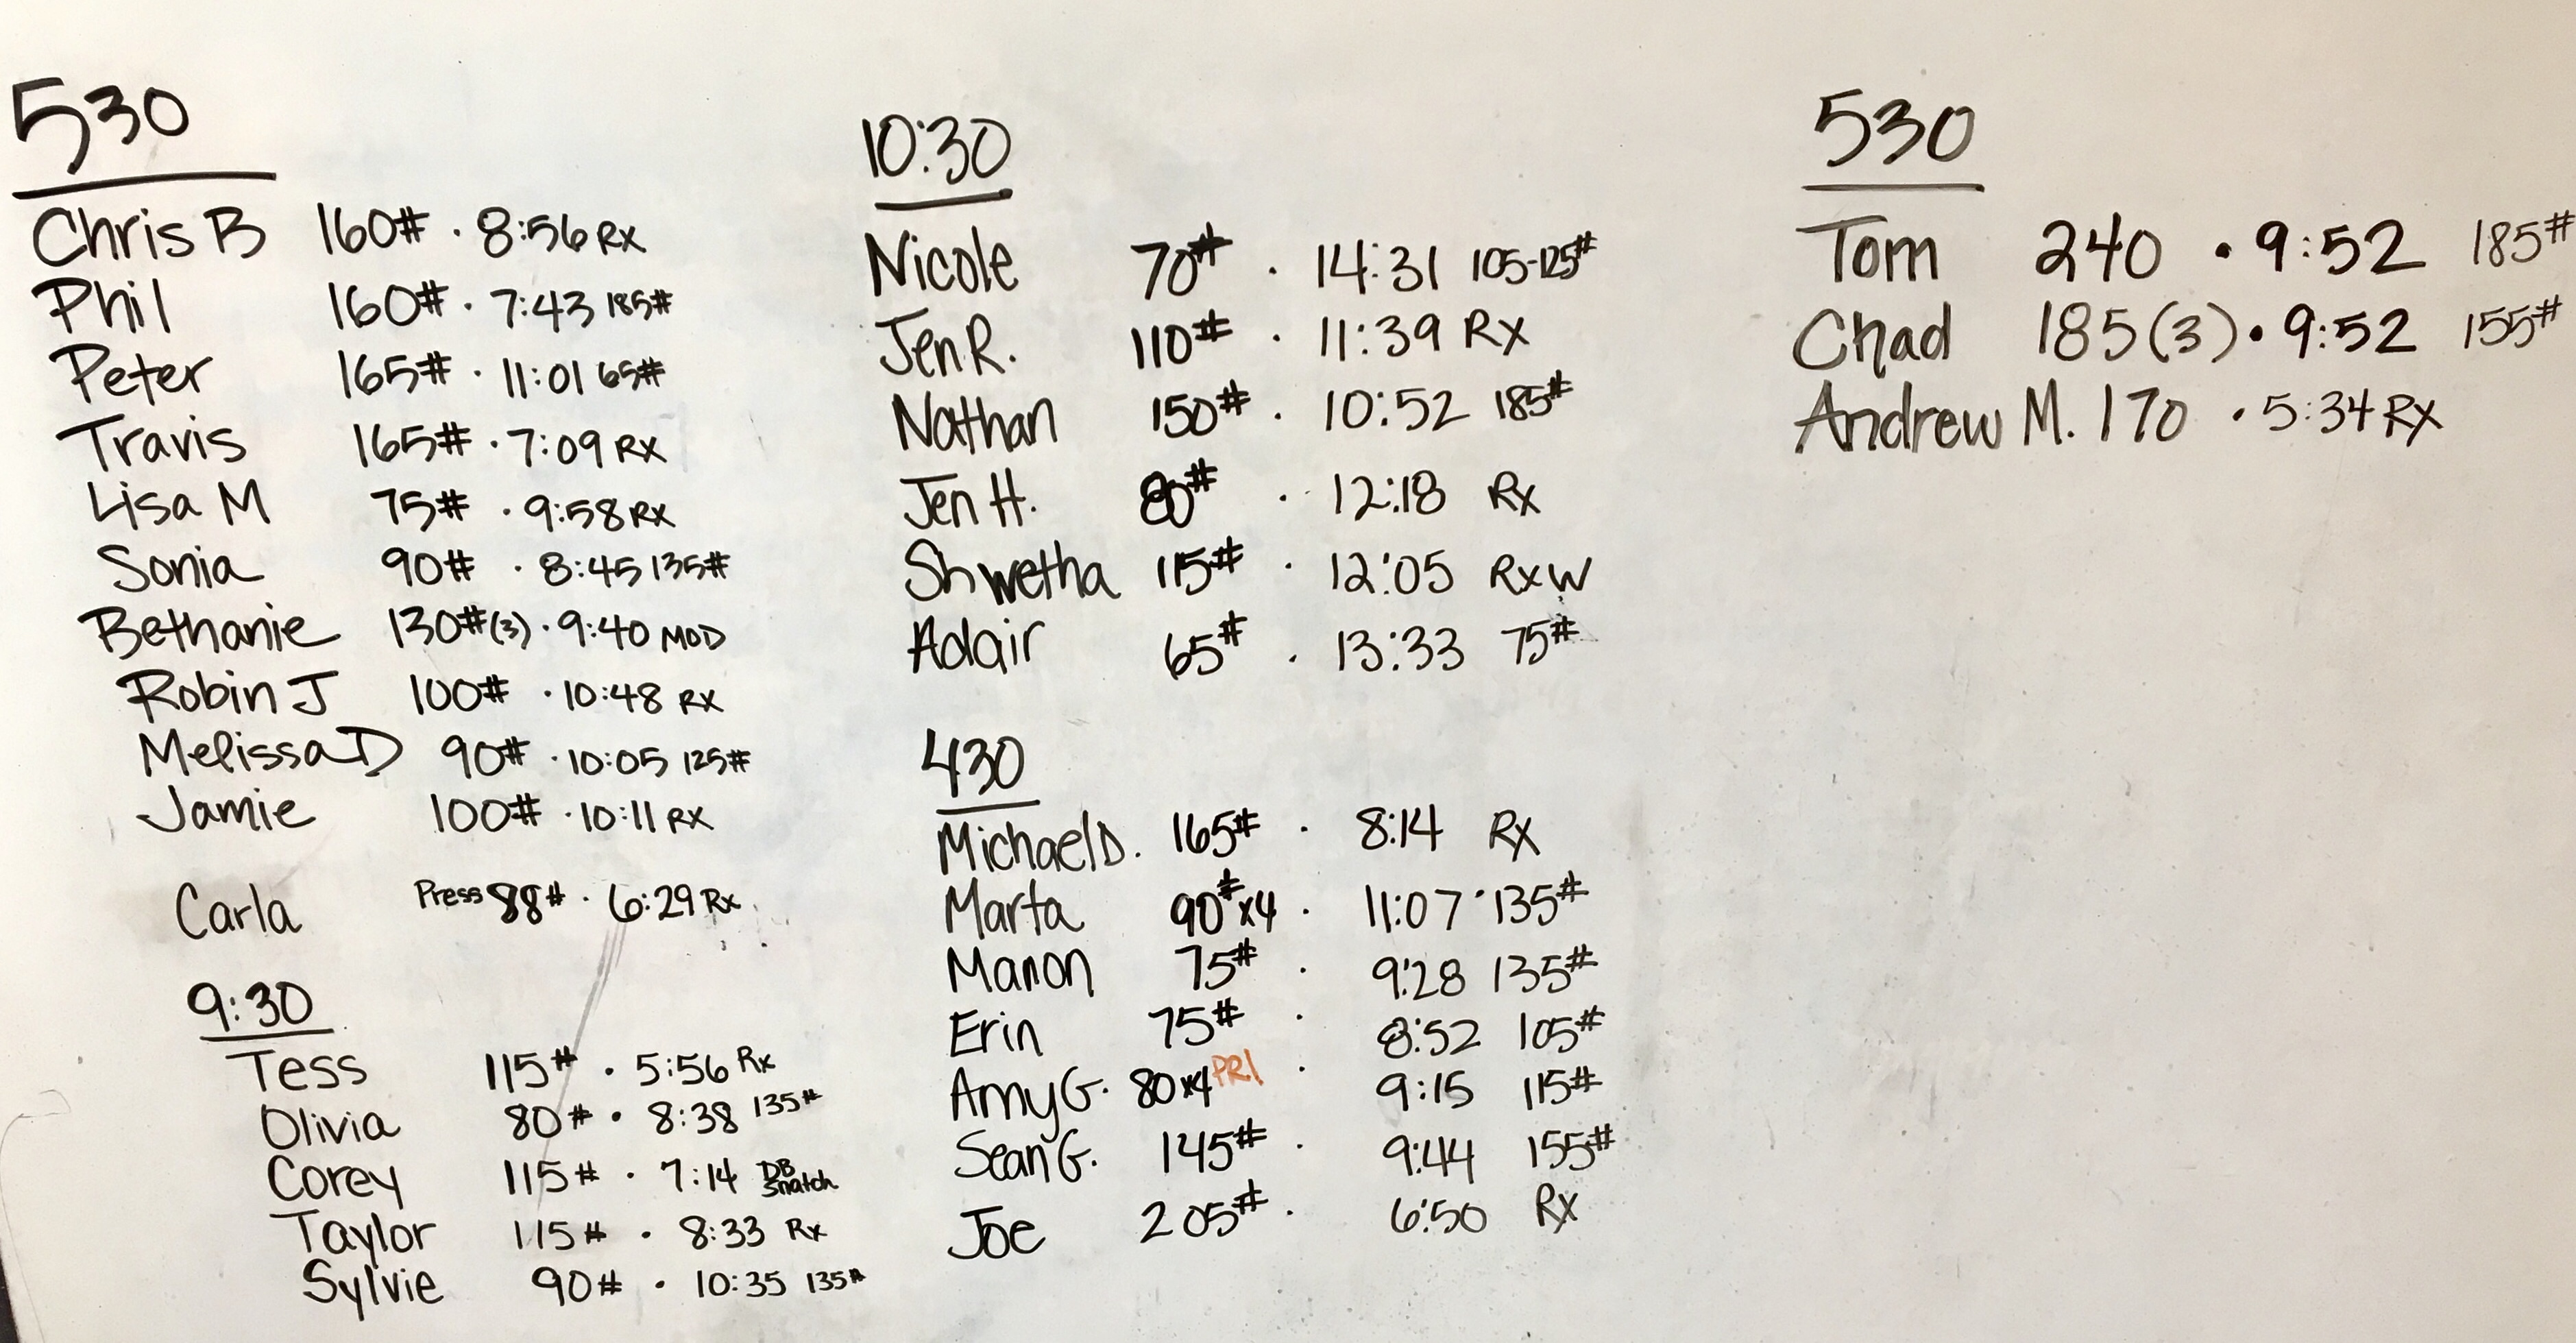 530
Chris B 160# · 8:56 Rx
Phil 160# · 7:43 185#
Peter 165# · 11:01 65#
Travis 165# · 7:09 RX
Lisa M 75# · 9:58 RX
Sonia 90# · 8:45 135#
Bethanie 130#(3) · 9:40 MOD
Robin J 100# · 10:48 RX
Melissa D 90# · 10:05 125#
Jamie 100# · 10:11 RX
Carla Press 88# · 6:29 Rx
9:30
Tess 115# · 5:56 Rx
Olivia 80# · 8:38 135#
Corey 115# · 7:14 DB Snatch
Taylor 115# · 8:33 Rx
Sylvie 90# · 10:35 135#
10:30
Nicole 70# · 14:31 105-125#
Jen R. 110# · 11:39 RX
Nathan 150# · 10:52 185#
Jen H. 80# · 12:18 Rx
Shwetha 115# · 12:05 RxW
Adair 65# · 13:33 75#
430
Michael D. 165# · 8:14 Rx
Marta 90#x4 · 11:07 · 135#
Manon 75# · 9:28 135#
Erin 75# · 8:52 105#
Amy G. 80x4 PR! · 9:15 115#
Sean G. 145# · 9:44 155#
Joe 205# · 6:50 Rx
530
Tom 240 · 9:52 185#
Chad 185(3) · 9:52 155#
Andrew M. 170 · 5:34 RX